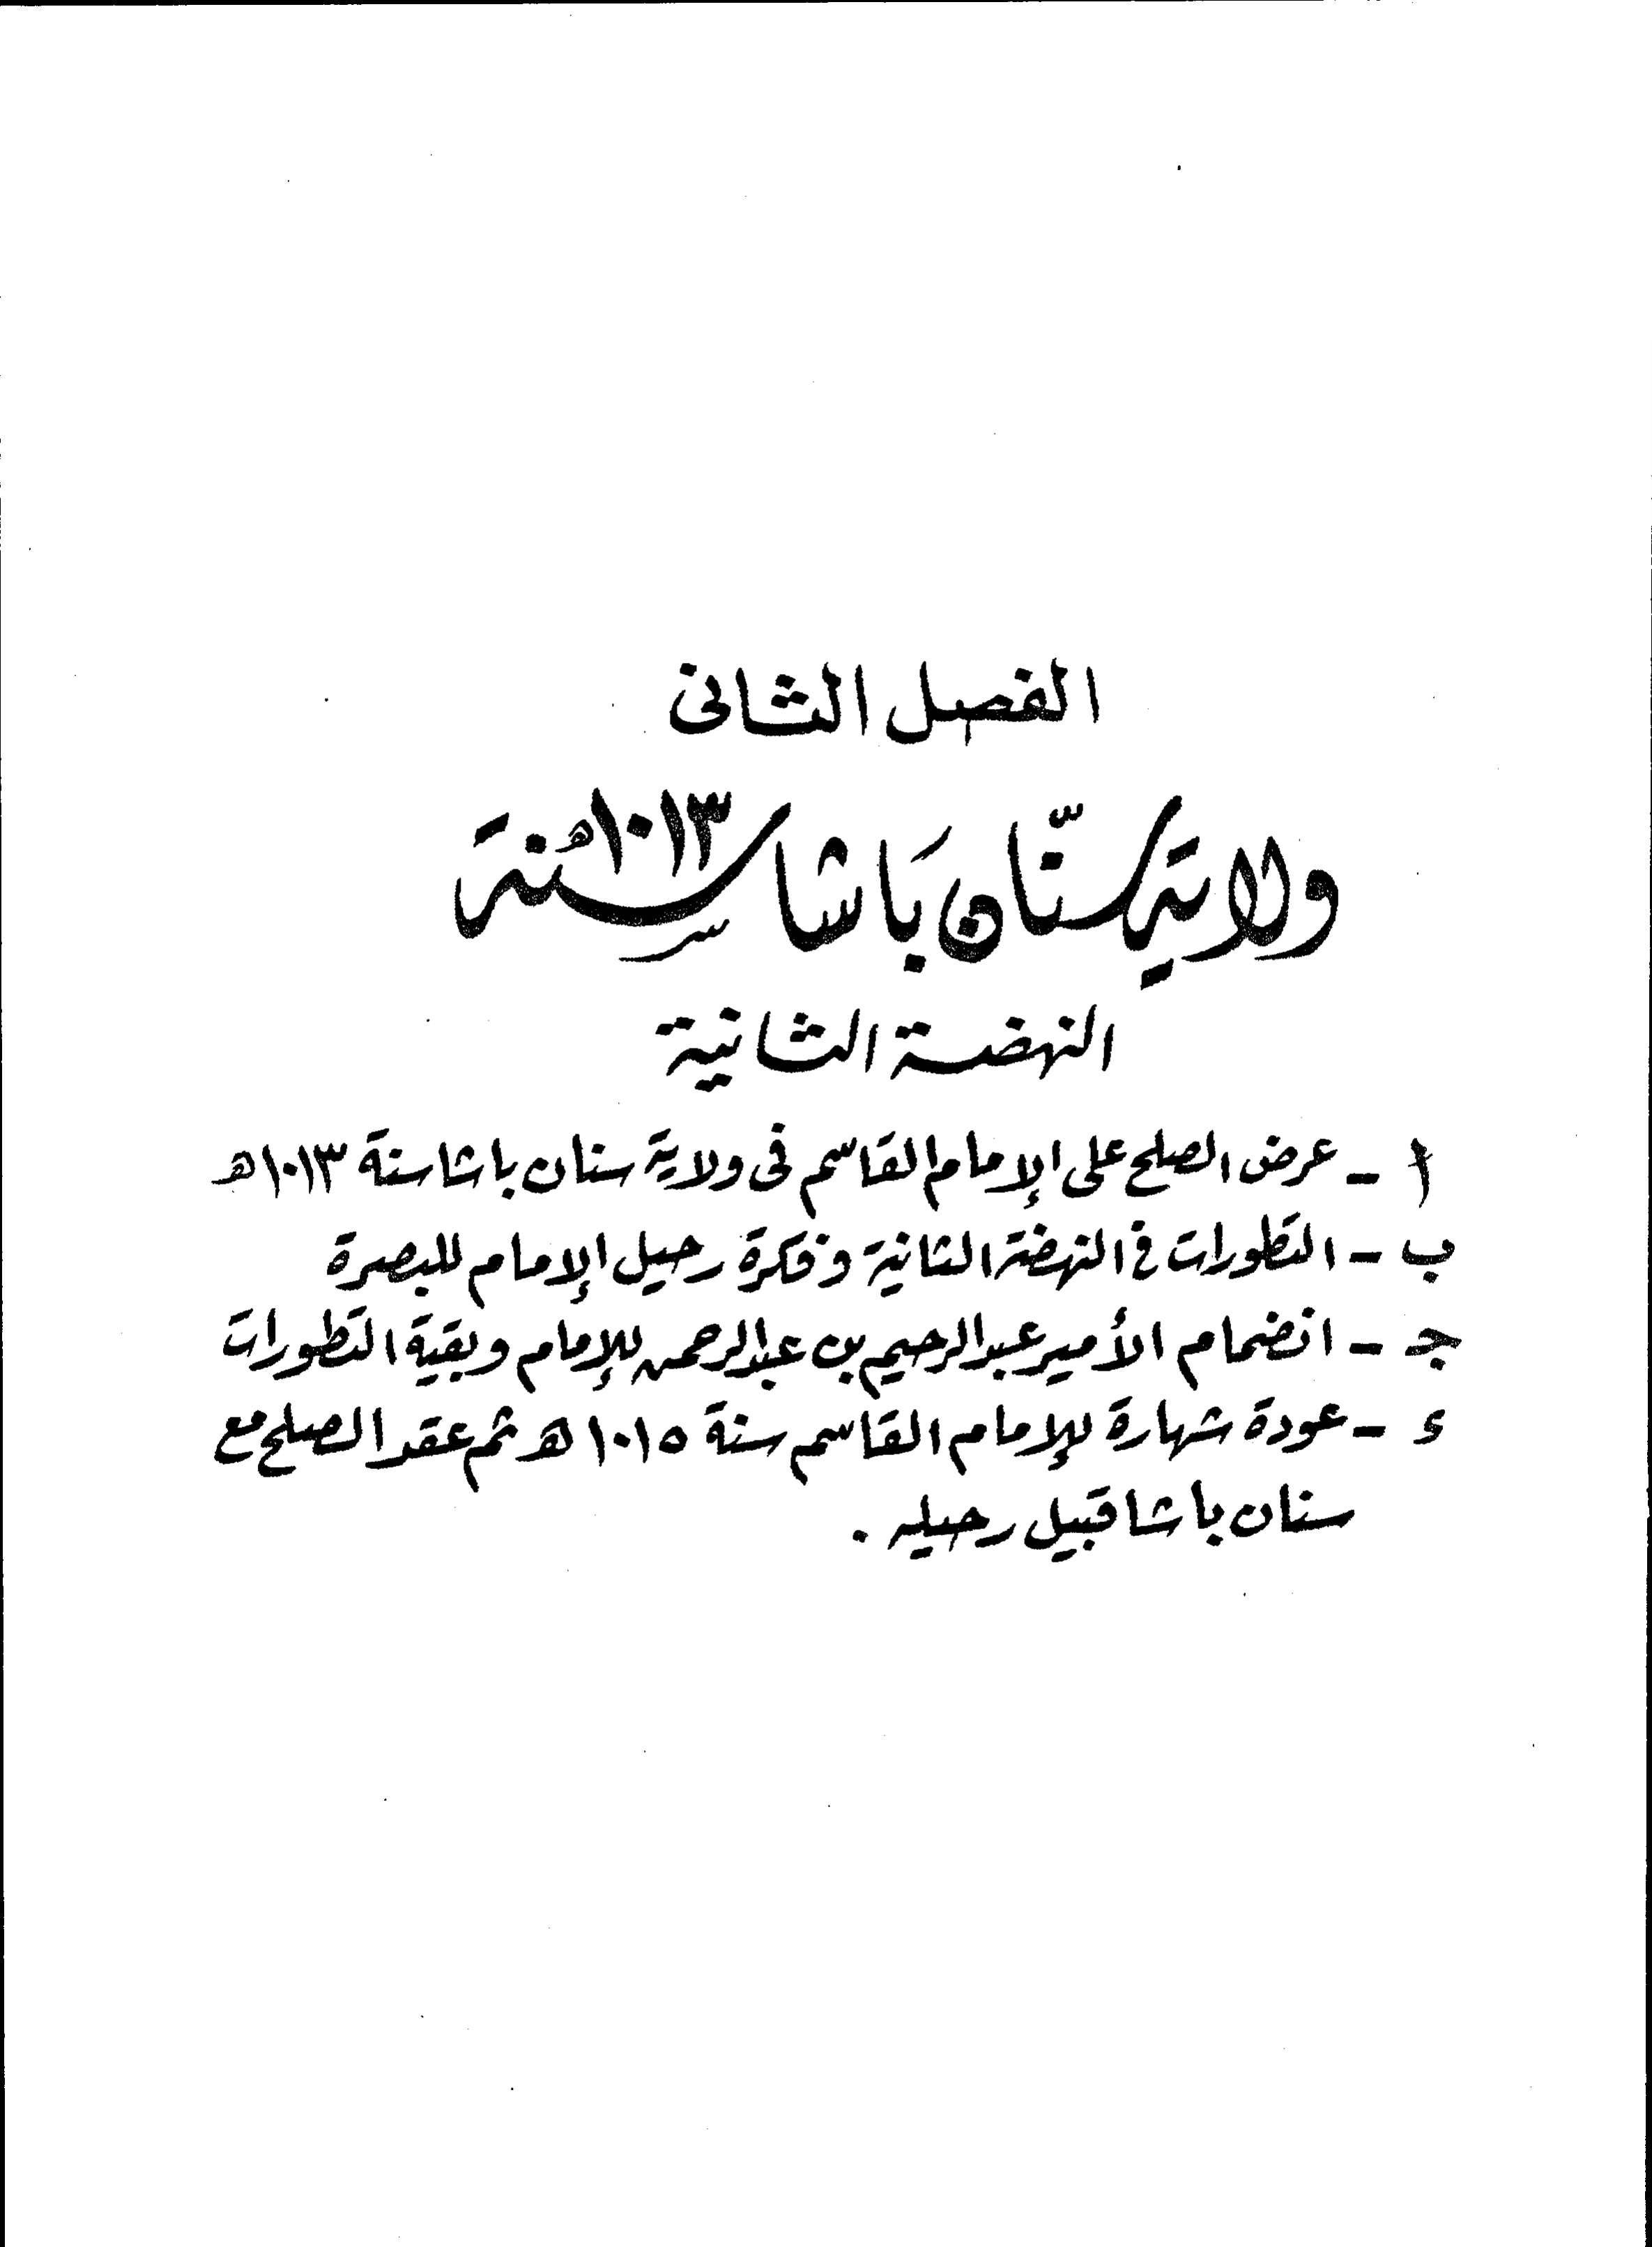 الفصل الثانى
ولاية سنّان بَاشا سنُة ١٠١٣ﻫ
النهضة الثانية
أ - عرض الصلح على الإمام القاسم فى ولاية سنان باشا سنة ١٠١٣ﻫ
ب - التطورات فى النهضة الثانية وفكرة رحيل الإمام للبصرة
جـ - انضمام الأمير عبدالرحيم بن عبدالرحمن للإمام وبقية التطورات
ء - عودة شهارة للإمام القاسم سنة ١٠١٥ﻫ ثم عقد الصلح مع
سنان باشا قبيل رحيله .